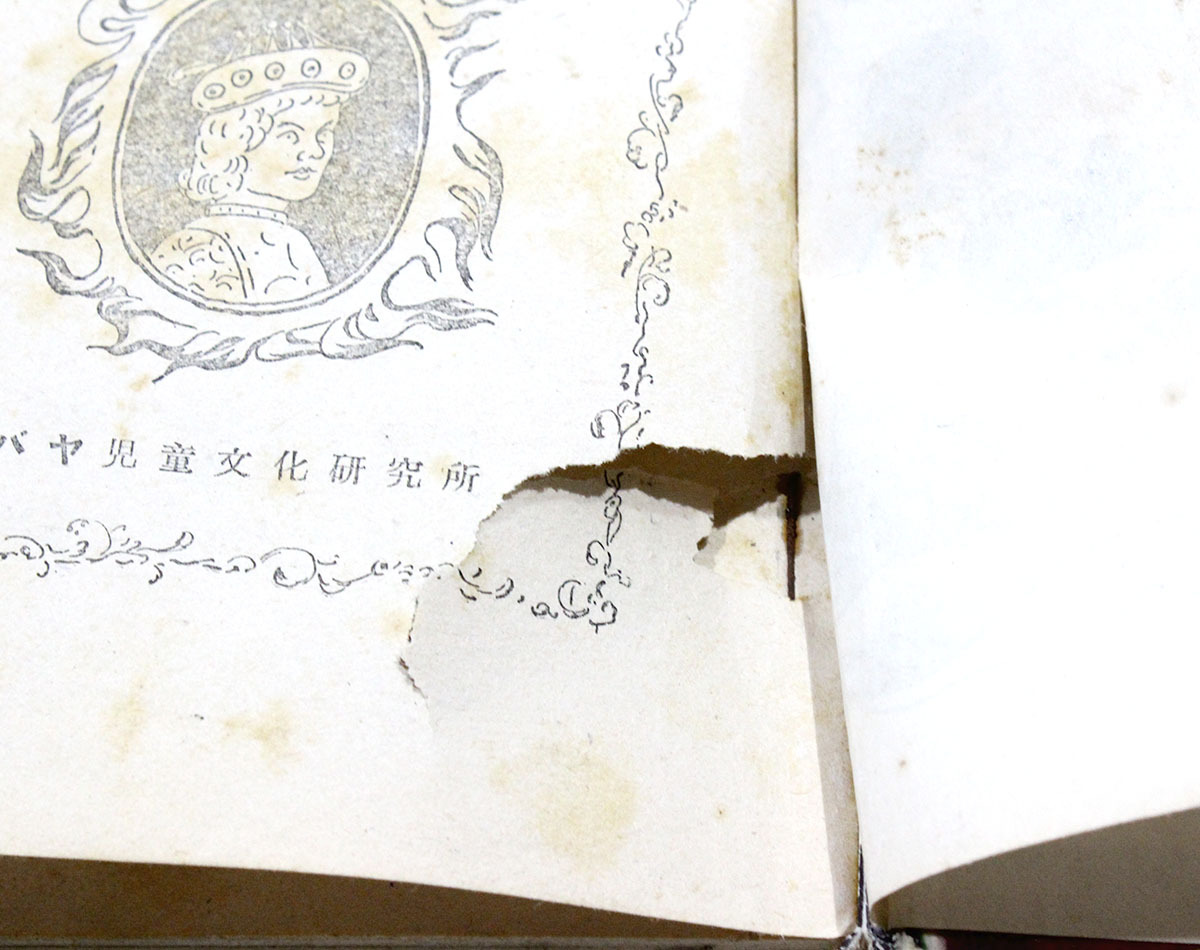 バヤ児童文化研究所